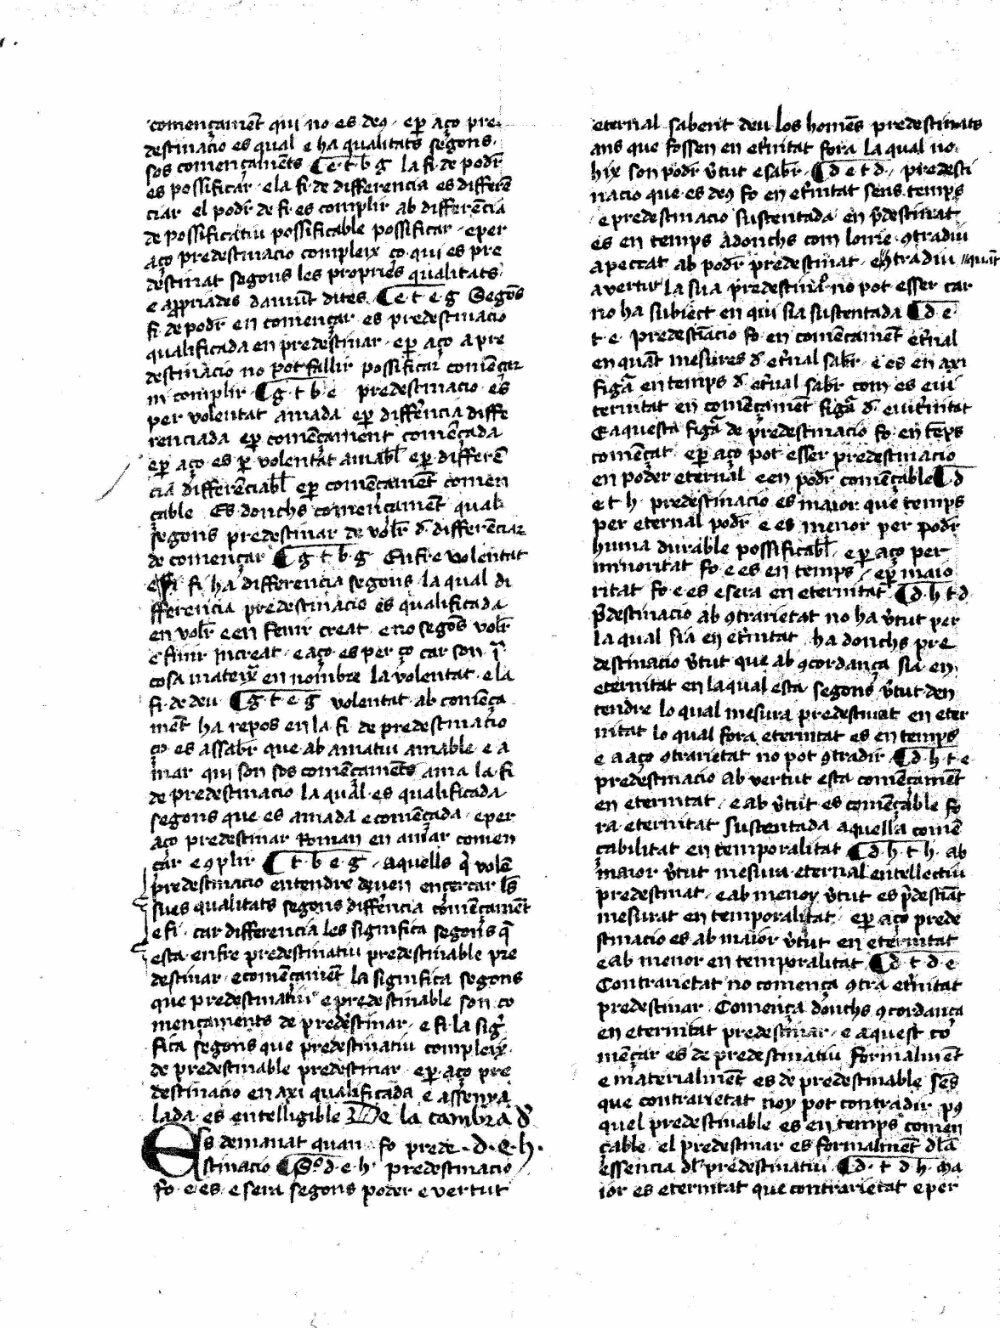 començament̄ qui no es deꝰ · eꝑ aço pre
destinacio es qual e ha qualitats segons
sos començamēts ¶ e·t·b·g la fi de podr̄
es possificar · e la fi de differencia es differē
ciar el podr̄ de fi es complir ab differēcia
de possificatiu possificable possificar · e per
aço predestinacio compleix ço qui es pre
destinat segons les propries qualitats
e appriades damūt dites ¶ e·t·e·g Segōs
fi de podr̄ en començar es predestinacio
qualificada en predestinar · eꝑ aço a pre
destinacio no pot fallir possificar comēçar
ni complir ¶ g·t·b·e · predestinacio es
per volentat amada eꝑ differ̄cia diffe
renciada eꝑ comēçament comēçada
eꝑ aço es ꝑ volentat amabl̄ eꝑ differē
cia differēciabl̄ eꝑ comēçamēt comen
çable Es donchs començamēt qual
segons predestinar de volr̄ d̄ differēciar
de començar ¶ g·t·b·g Enfre volentat
e fi ha differencia segons la qual di
fferencia predestinacio es qualificada
en volr̄ e en fenir creat · e no segōs volr̄
e finir increat · e aço es per ço car son ī
cosa mateix̄ en nombre la volentat · e la
fi de deu ¶ g·t·e·g volentat ab comēça
mēt ha repos en la fi de predestinacio
ço es assabr̄ que ab amatiu amable e a
mar qui son sos comēçamēts ama la fi
de predestinacio la qual es qualificada
segons que es amada e comēçada · e per
aço predestinar Roman en amar comen
çar e ꝯplir ¶ t·b·e·g · aquells q̄ volē
predestinacio entendre deuen encercar ls̄
sues qualitats segons differ̄cia comēçamēt
e fi · car differencia les significa segons q̄
esta enfre predestinatiu predestinable pre
destinar · e comēçamēt la significa segons
que predestinatiu e predestinable son co
mençaments de predestinar · e fi la siḡ
fica segons que predestinatiu compleix
de predestinable predestinar · eꝑ aço pre
destinacio en axi qualificada e assenya
lada es entelligible De la cambra d̄
Es demanat quan fo prede · d·e·h·
stinacio ¶ So d·e·h· predestinacio
fo · e es · e sera segons poder e vertut
eternal sabent deu los homēs predestinats
ans que fossen en et̄nitat fora la qual no
hix son podr̄ v̄tut e sabr̄ · ¶ d e t d · predesti
nacio que es deꝰ fo en et̄nitat sens temps
· e predestinacio sustentada en p̄destinat
es en temps adonchs com lome ꝯtradiu
a peccat ab podr̄ predestinat · e ꝯtradiu
a vertut la sua predestina no pot esser car
no ha subiect en qui sia sustentada ¶ d·e·
t·e· predestīacio fo en comēcamēt et̄nal
en quāt mesures d̄ et̄nal sabr̄ · e es en axi
figā en temps d̄ et̄nal sabr̄ com es eui
ternitat en comēçamēt figā d̄ euit̄nitat
E aquesta figā de predestinacio fo en tēps
comēcat · eꝑ aço pot esser predestinacio
en poder eternal e en podr̄ comēçable ¶ d
e t h predestinacio es maior que temps
per eternal podr̄ e es menor per podr̄
huma durable possificabl̄ · eꝑ aço per
minoritat fo e es en temps · eꝑ maio
ritat fo · e es e sera en eternitat ¶ d·h·t·d
p̄destinacio ab ꝯtrarietat no ha v̄tut per
la qual sia en et̄nitat · ha donchs pre
destinacio v̄tut que ab ꝯcordança sia en
eternitat en la qual esta segons v̄tut den
tendre lo qual mesura predestinat en eter
nitat lo qual fora eternitat es en temps
e a aço ꝯtrarietat no pot ꝯtradir ¶ d·h·t·e
predestinacio ab vertut esta comēçamēt
en eternitat · e ab v̄tut es comēçable fo
ra eternitat sustentada aquella comē
çabilitat en temporalitat ¶ d·h·t·h· ab
maior v̄tut mesura eternal entellectiu
predestinat · e ab menor v̄tut es p̄destīat
mesurat en temporalitat · eꝑ aço prede
stinacio es ab maior v̄tut en eternitat
e ab menor en temporalitat ¶ d·t·d·e·
Contrarietat no comença ꝯtra et̄nitat
predestinar · Comença donchs ꝯcordança
en eternitat predestinar · e aquest co
mēçar es de predestinatiu formalmēt
e materialmēt es de predestinable ses
que contrarietat noy pot contradir ꝑꝙ
quel predestinable es en temps comen
çable · el predestinar es formalmēt dla
essencia dl̄ predestinatiu ¶ d·t·d·h· ma
ior es eternitat que contrarietat e per